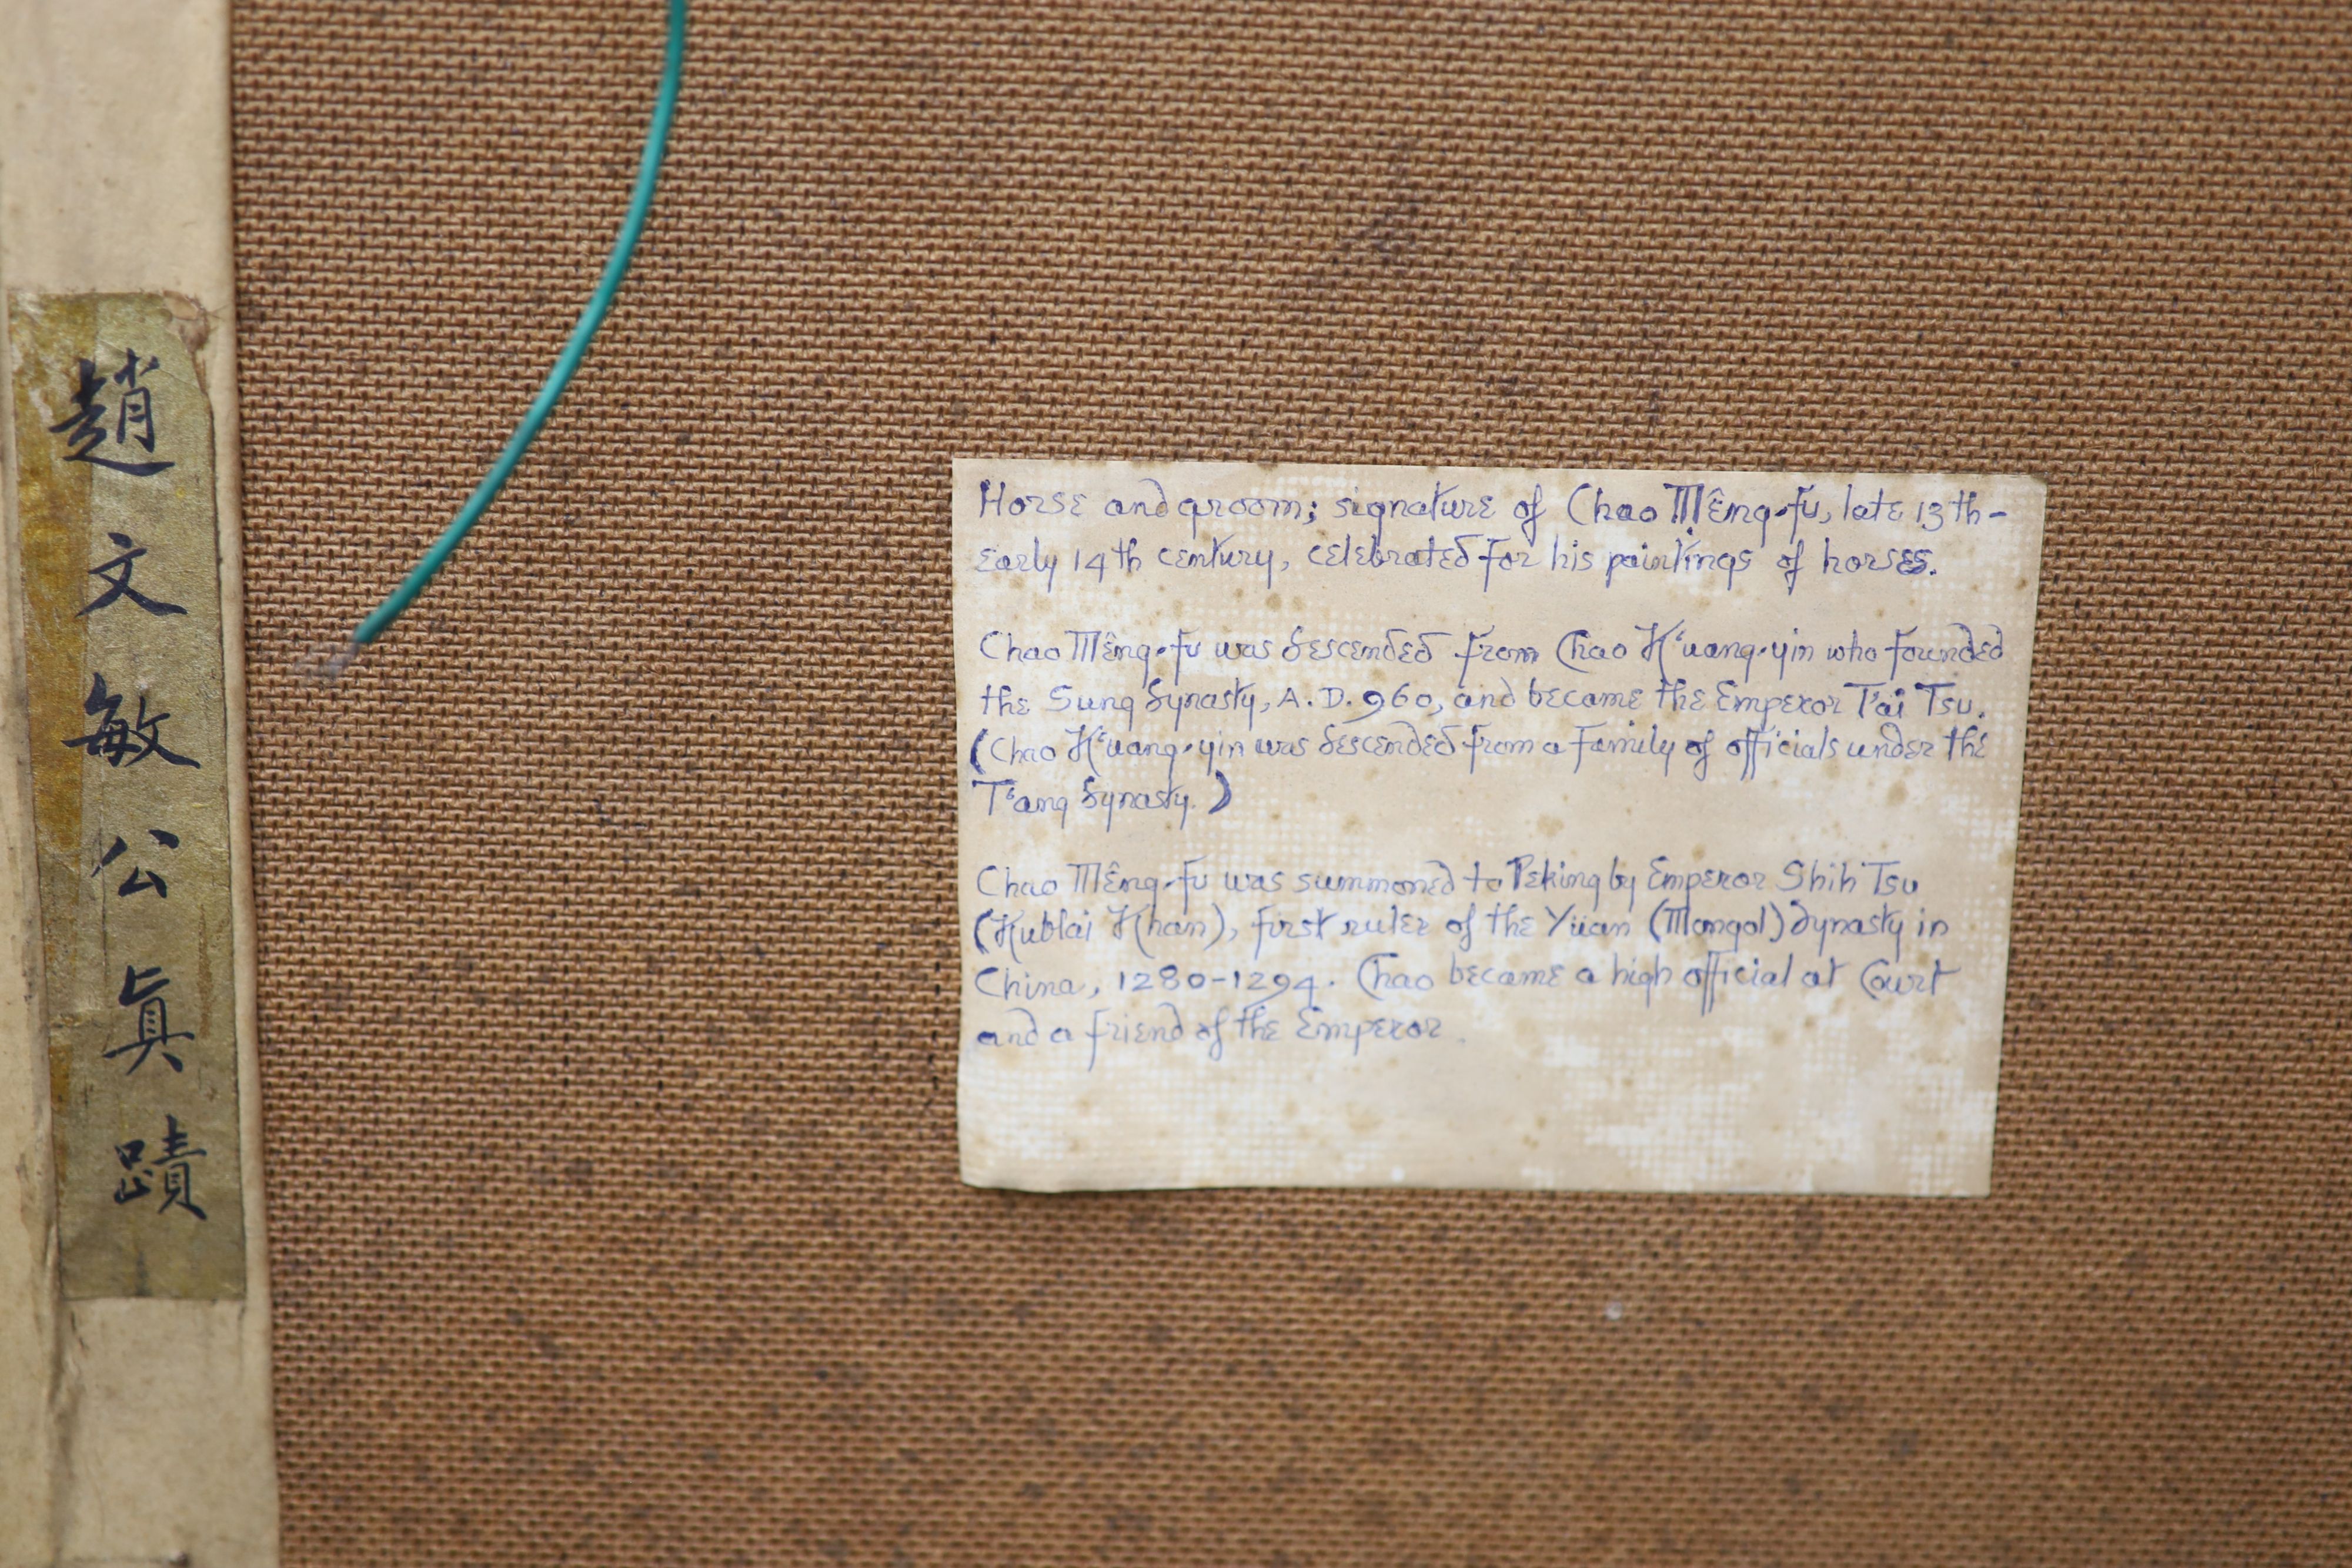 趙文敏公眞蹟
Horse and groom; signature of Chao Mêng-fu, late 13th-
early 14th century, celebrated for his paintings of horses.
Chao Mêng-fu was descended from Chao K'uang-yin who founded
the Sung dynasty, A.D. 960, and became the Emperor T'ai Tsu.
(Chao K'uang-yin was descended from a family of officials under the
T'ang dynasty.)
Chao Mêng-fu was summoned to Peking by Emperor Shih Tsu
(Kublai Khan), first ruler of the Yüan (Mongol) dynasty in
China, 1280-1294. Chao became a high official at Court
and a friend of the Emperor.